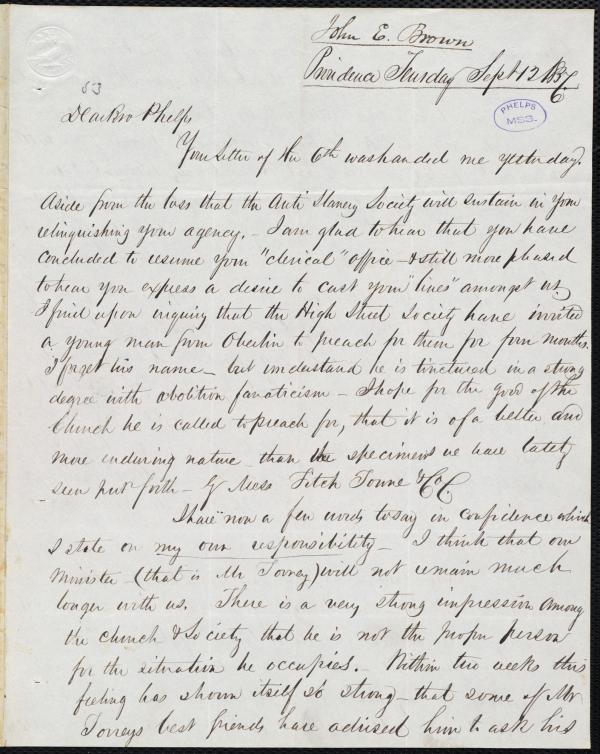 John E. Brown
Providence Tuesday Sept 12 1837.
83
PHELPS
MSS.
Dear Bro Phelps
Your letter of the 6th was handed me yesterday.
Aside from the loss that the Anti Slavery Society will sustain in your
relinquishing your agency. - I am glad to hear that you have
concluded to resume your "clerical" office - & still more pleased
to hear you express a desire to cast your "lines" amongst us.
I find upon inquiry that the High Street Society have invited
a young man from Oberlin to preach for them for four months.
I forget his name - but understand he is tinctured in a strong
degree with abolition fanaticism - I hope for the good of the
Church he is called to preach for, that it is of a better and
more enduring nature than the specimens we have lately
seen put forth - by Mess Fitch Towne & Co
I have now a few words to say in confidence which
I state on my own responsibility - I think that our
Minister (that is Mr Torrey) will not remain much
longer with us. There is a very strong impression among
the church & Society that he is not the proper person
for the situation he occupies. - Within two weeks this
feeling has shown itself so strong - that some of Mr
Torreys best friends have advised him to ask his